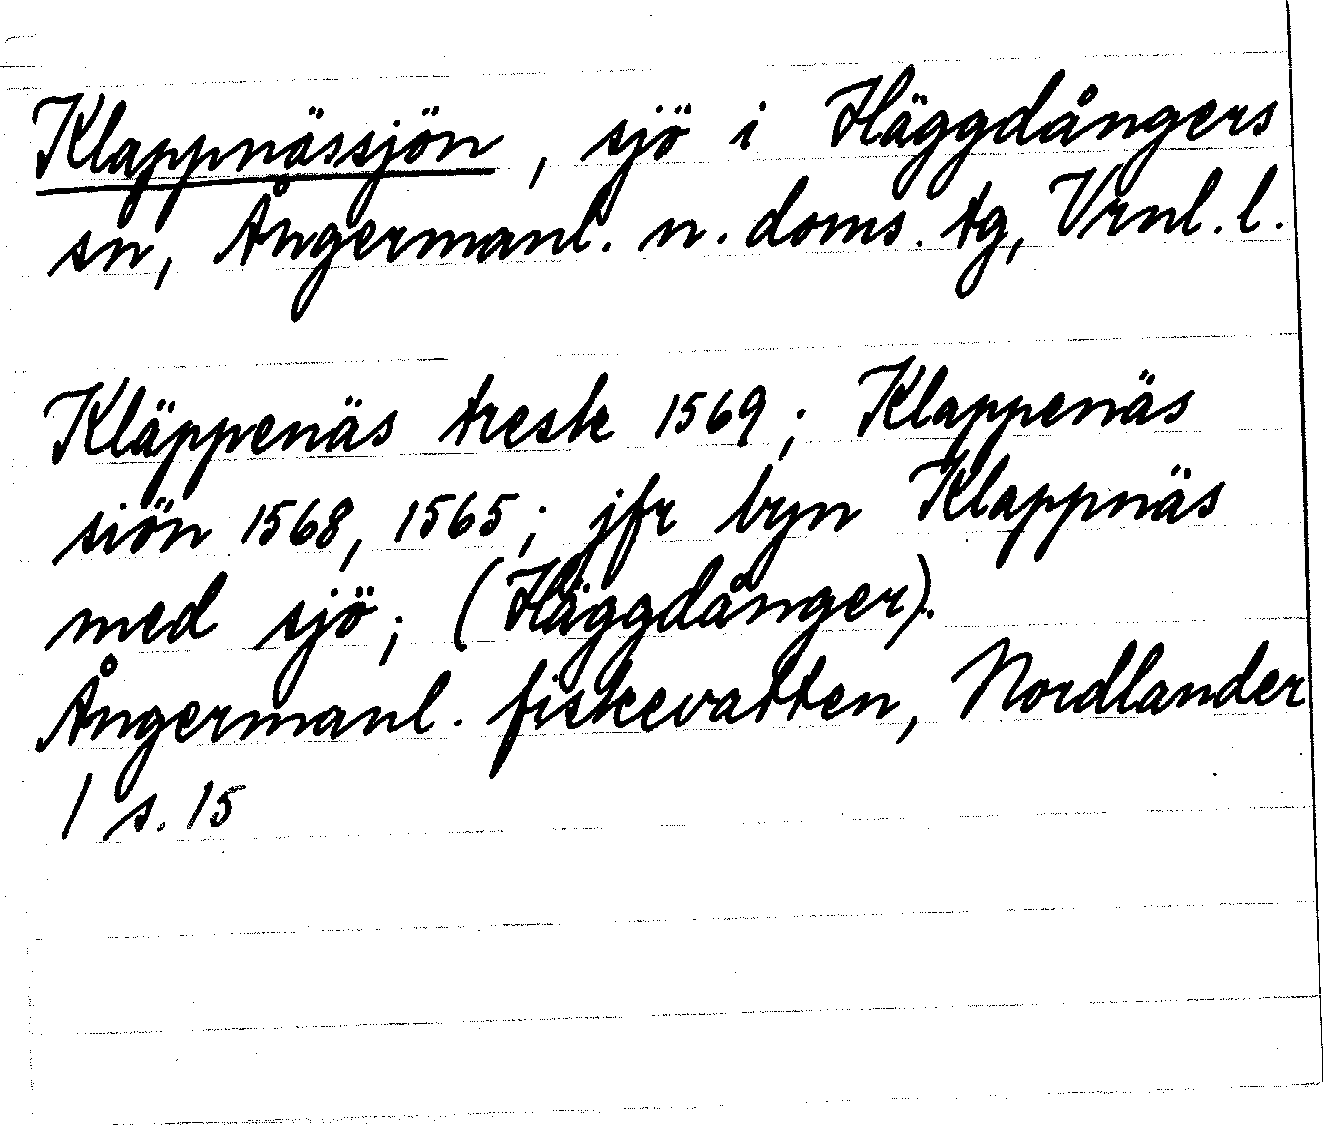 Klappnässjön, sjö i Häggdångers
sn, Ångermanl. n. doms. tg, Vrnl. l.
Kläppenäs tresk 1569; Klappenäs
siön 1568, 1565; jfr byn Klappnäs
med sjö; (Häggdånger).
Ångermanl. fiskevatten, Nordlander
1 s. 15